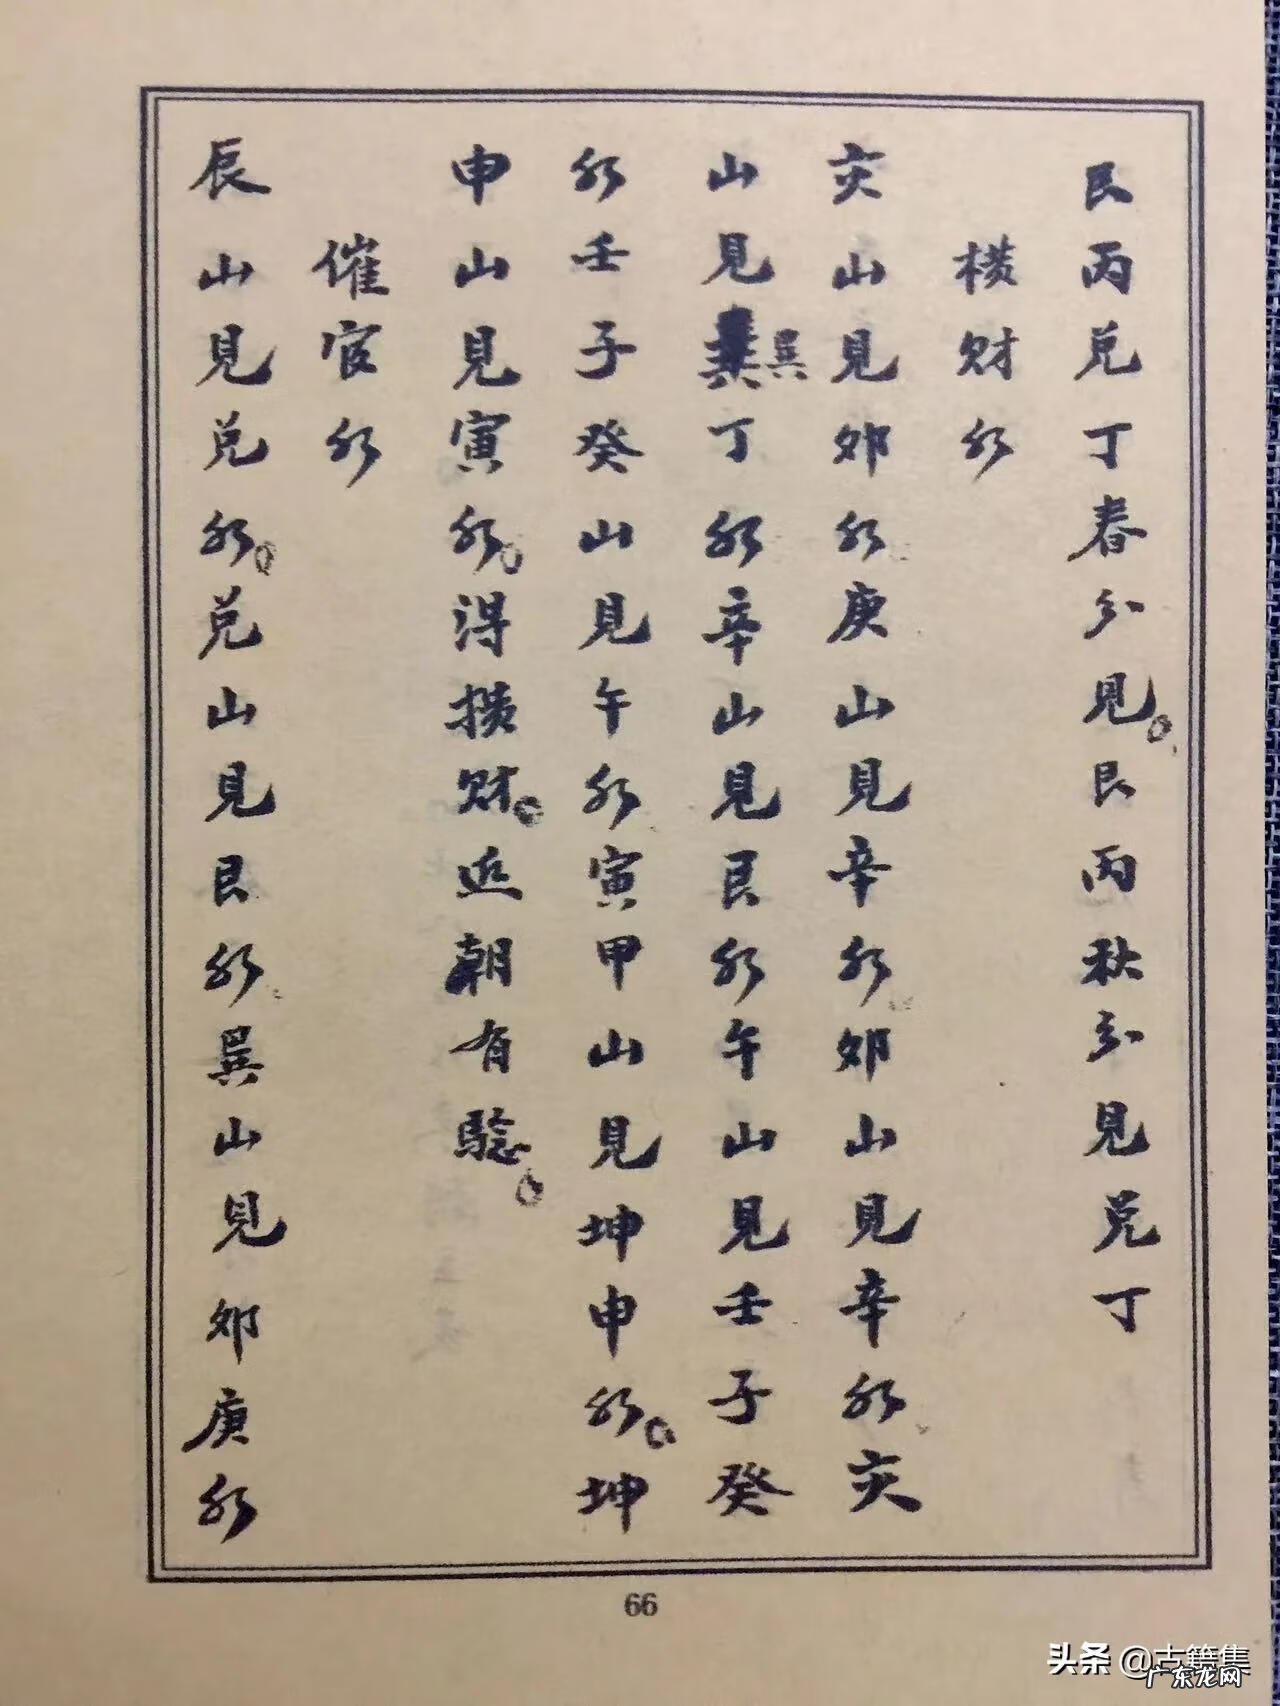 艮丙兑丁春分見。艮丙秋分見兑丁
横财水
亥山見夘水庚山見辛水夘山見辛水亥
山見巽丁水辛山見艮水午山見壬子癸
水壬子癸山見午水寅甲山見坤申水。坤
申山見寅水。得横财。近朝有騐。
催官水
辰山見兑水。兑山見艮水巽山見夘庚水
66
头条 @古籍集
广东龙网